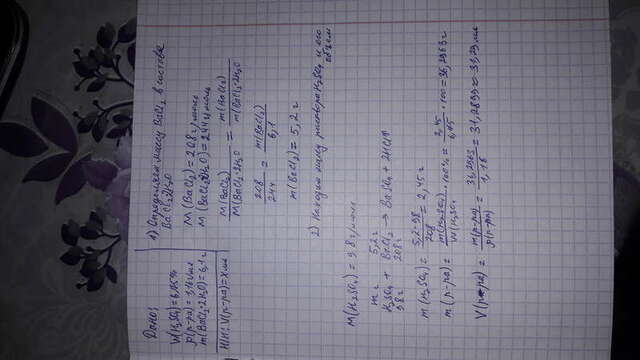 Дано:
W(H₂SO₄)=6,75%
ρ(р-ра)=1,16 г/мл
m(BaCl₂·2H₂O)=6,1г
Н/н: V(р-ра)=X мл
1) Определяем массу BaCl₂ в составе
BaCl₂·2H₂O
M(BaCl₂)=208 г/моль
M(BaCl₂·2H₂O)=244 г/моль
M(BaCl₂)/M(BaCl₂·2H₂O = m(BaCl₂)/m(BaCl₂·2H₂O
208/244 = m(BaCl₂)/6,1
m(BaCl₂)=5,2 г
2) Находим массу раствора H₂SO₄ и его
объем
M(H₂SO₄)=98 г/моль
m г 5,2 г
H₂SO₄ + BaCl₂ → BaSO₄ + 2HCl↑
98г 208г
m(H₂SO₄)= 5,2·98/208 = 2,45 г
m(р-ра)= m(H₂SO₄)/W(H₂SO₄ ·100%= 2,45/6,75 ·100=36,2963г
V(р-ра) = m(р-ра)/ρ(р-ра) = 36,2963/1,16 = 31,2899≈31,29 мл